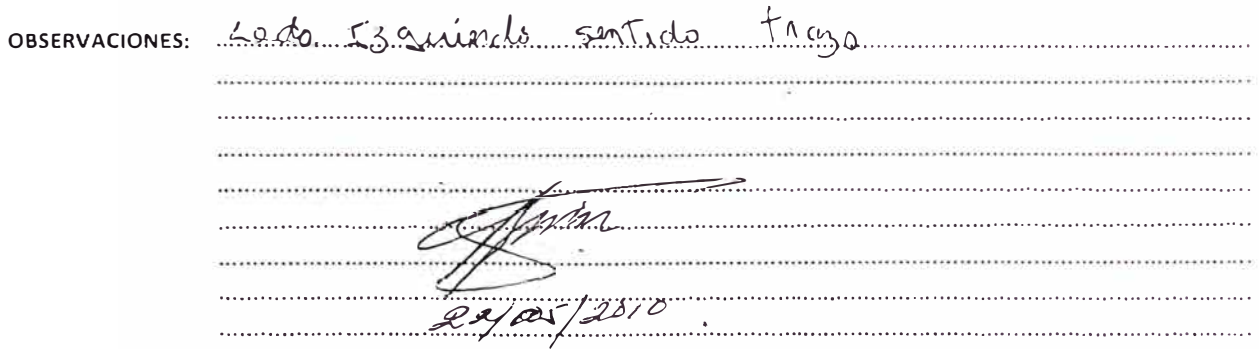 OBSERVACIONES: Lado Izquierdo sentido trazo
22/005/2010